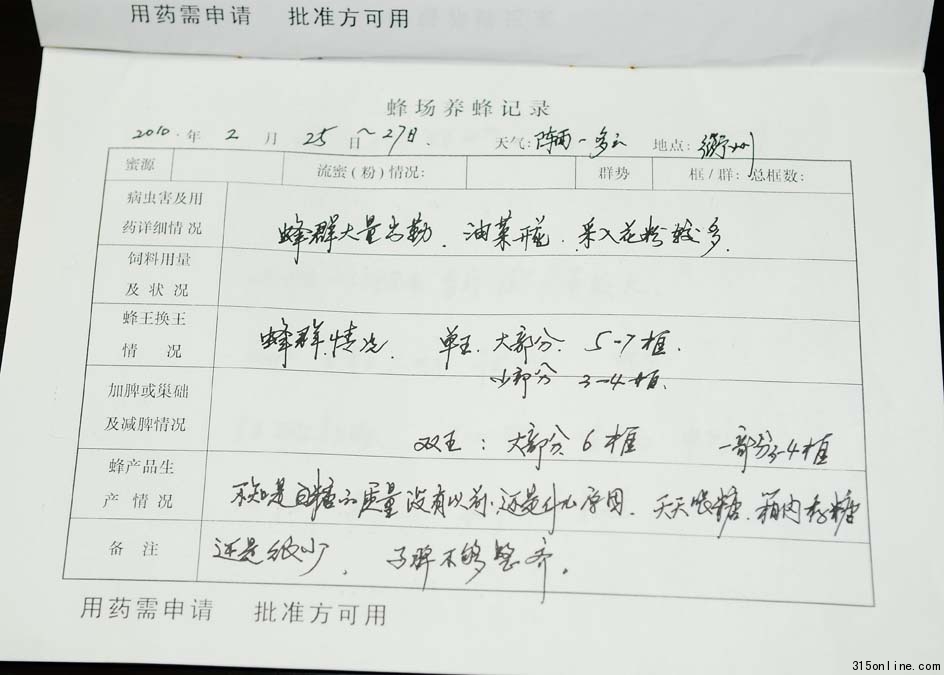 用药需申请 批准方可用
蜂场养蜂记录
2010 年 2 月 25 日~27日. 天气: 阵雨-多云 地点: 衢州
蜜源 流蜜(粉)情况: 群势 框/群: 总框数:
病虫害及用
药详细情况 蜂群大量出勤. 油菜开花. 采入花粉较多.
饲料用量
及状况
蜂王换王
情况 蜂群情况. 单王. 大部分. 5-7框.
少部分 3-4框.
加脾或巢础
及减脾情况
双王: 大部分 6框 一部分3-4框
蜂产品生
产情况 不知是白糖的质量没有以前.还是什么原因. 天天喂糖.箱内存糖
备注 还是很少. 子脾不够整齐.
用药需申请 批准方可用
315online.com